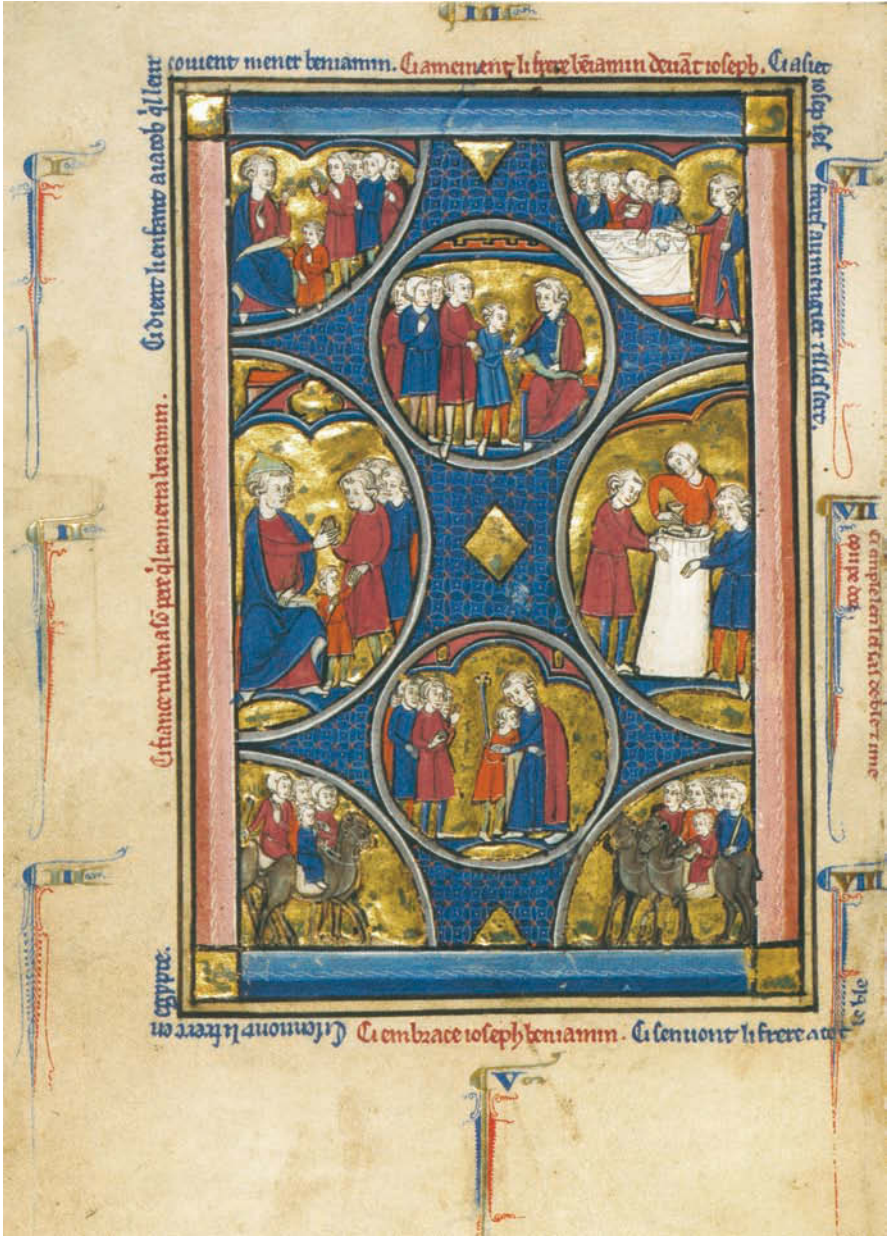 Ci dient li enfant a iacob q'l leur
couient mener beniamin. Ci amenient li frere bēiamin deuāt ioseph. Ci asiet
iosep ses
freres au mengier ⁊ il les sert.
I
VI
Ci fiance ruben a sō pere q'l ramerra beniamin.
II
VII
Ci emplent les sas de ble ⁊ une
coupe dor.
III
VIII
Ci sen uont li frere en
egypte.
Ci embrace ioseph beniamin. Ci sen uont li frere a tot
le ble
V